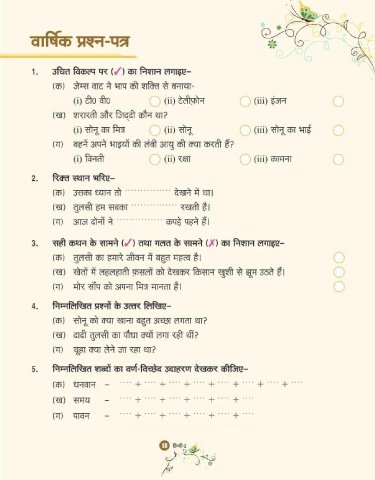 वार्षिक प्रश्न-पत्र
1. उचित विकल्प पर (✓) का निशान लगाइए–
(क) जेम्स वाट ने भाप की शक्ति से बनाया-
(i) टी० वी० (ii) टेलीफ़ोन (iii) इंजन
(ख) शरारती और जिद्दी कौन था?
(i) सोनू का मित्र (ii) सोनू (iii) सोनू का भाई
(ग) बहनें अपने भाइयों की लंबी आयु की क्या करती हैं?
(i) विनती (ii) रक्षा (iii) कामना
2. रिक्त स्थान भरिए–
(क) उसका ध्यान तो ................ देखने में था।
(ख) तुलसी हम सबका ................ रखती है।
(ग) आज दोनों ने ................ कपड़े पहने हैं।
3. सही कथन के सामने (✓) तथा गलत के सामने (✗) का निशान लगाइए–
(क) तुलसी का हमारे जीवन में बहुत महत्व है।
(ख) खेतों में लहलहाती फ़सलों को देखकर किसान खुशी से झूम उठते हैं।
(ग) मोर साँप को अपना मित्र मानता है।
4. निम्नलिखित प्रश्नों के उत्तर लिखिए–
(क) सोनू को क्या खाना बहुत अच्छा लगता था?
(ख) दादी तुलसी का पौधा क्यों लगा रही थीं?
(ग) चूहा क्या लेने जा रहा था?
5. निम्नलिखित शब्दों का वर्ण-विच्छेद उदाहरण देखकर कीजिए–
(क) धनवान – .... + .... + .... + .... + .... + .... + .... + ....
(ख) समय – .... + .... + .... + .... + .... + ....
(ग) पावन – .... + .... + .... + .... + .... + ....
88 हिन्दी-2